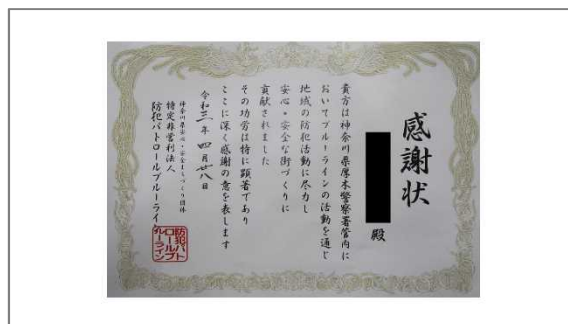 感謝状
殿
貴方は神奈川県厚木警察署管内に
おいてブルーラインの活動を通じ
地域の防犯活動に尽力し
安心・安全な街づくりに
貢献されました
その功労は特に顕著であり
ここに深く感謝の意を表します
令和三年四月廿八日
神奈川県安心・安全まちづくり団体
特定非営利法人
防犯パトロールブルーライ
防犯パト
ロールブ
ルーライン